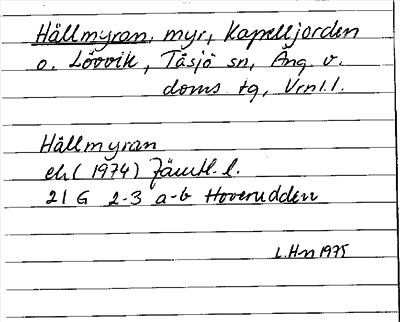 Hällmyran, myr, Kapelljorden
o. Lövvik, Tåsjö sn, Ång. v.
doms. tg, Vrnl.l.
Hällmyran
ek (1974) Jämtl. l.
21 G 2-3 a-b Hoverudden
L.Hn 1975